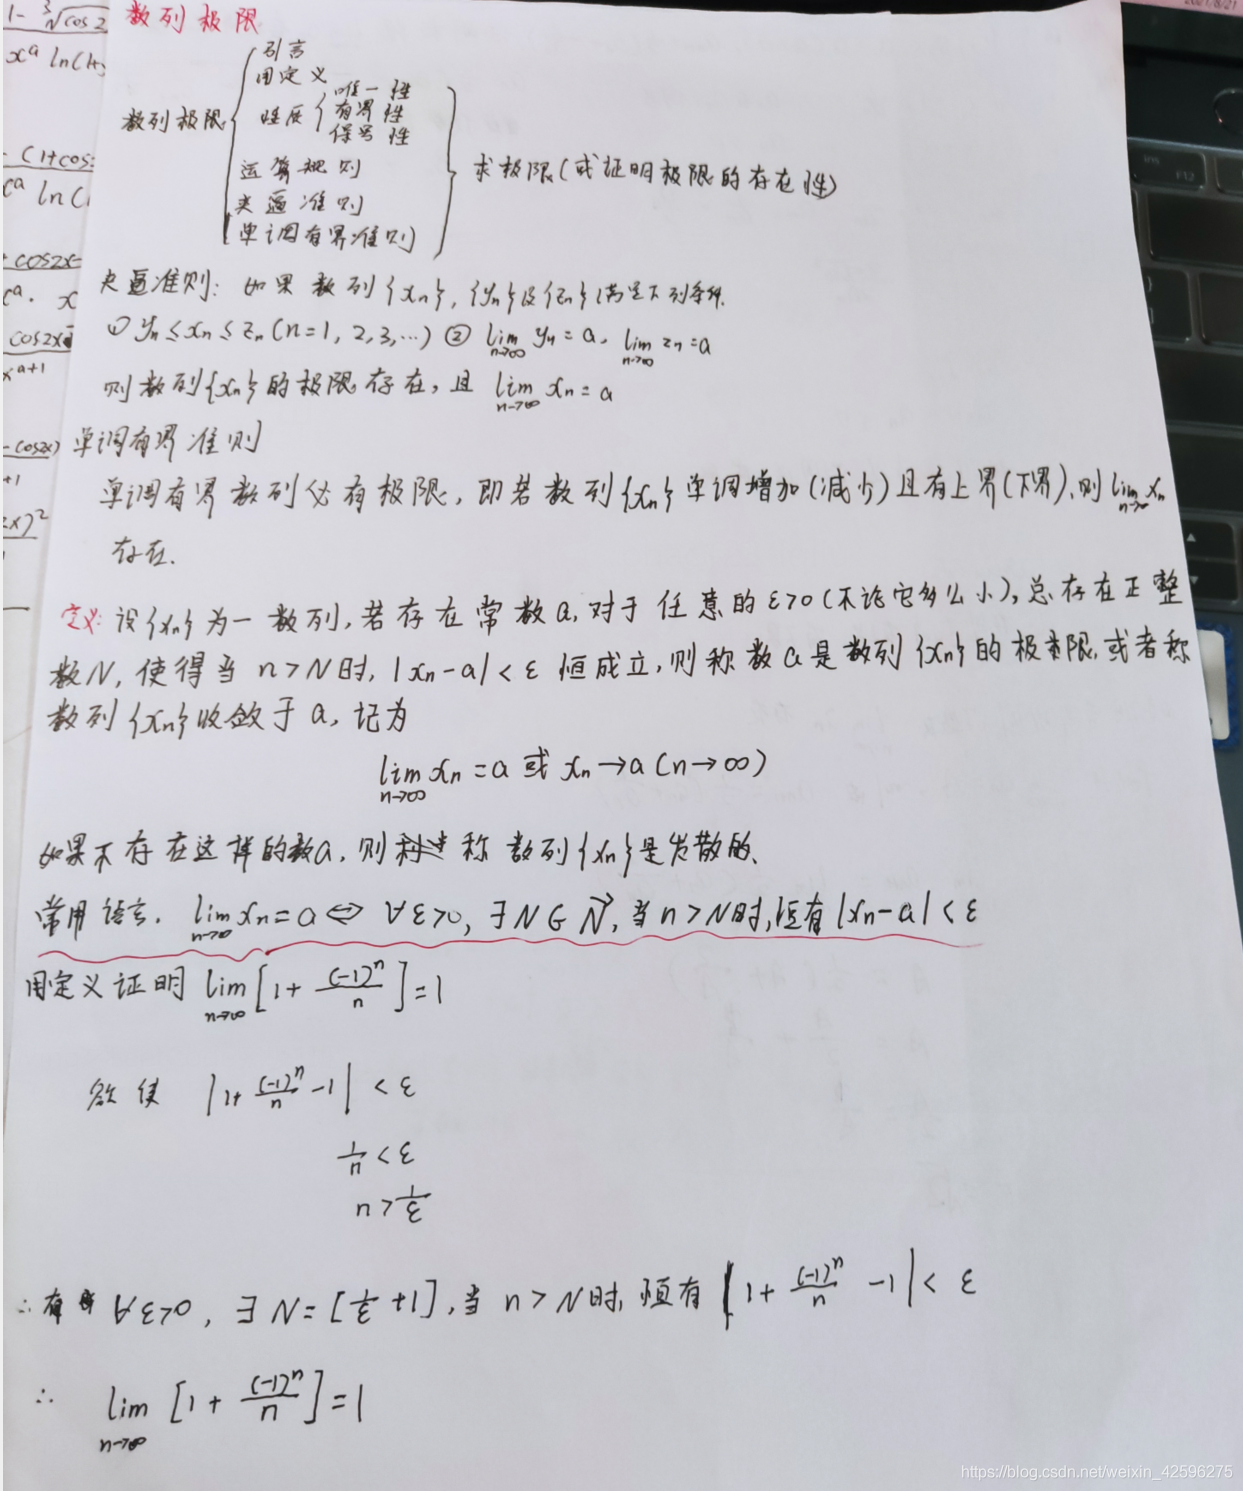 2021/8/21
1-³√cos2
xᵃ ln(1+
-(1+cos
ln(
cos2x-
cosx
xᵃ⁺¹
-cos2x)
+1
数列极限
引言
用定义
唯一性
数列极限 性质 有界性
保号性
运算规则 求极限(或证明极限的存在性)
夹逼准则
单调有界准则
夹逼准则: 如果数列{xn}, {yn}及{zn}满足下列条件.
① yn≤xn≤zn(n=1,2,3,…) ② lim n→∞ yn=a, lim n→∞ zn=a
则数列{xn}的极限存在, 且 lim n→∞ xn=a
单调有界准则
单调有界数列必有极限, 即若数列{xn}单调增加(减少)且有上界(下界), 则 lim n→∞ xn
存在.
定义: 设{xn}为一数列, 若存在常数a, 对于任意的ε>0(不论它多么小), 总存在正整
数N, 使得当 n>N时, |xn-a|<ε 恒成立, 则称数a是数列{xn}的极限, 或者称
数列{xn}收敛于a, 记为
lim n→∞ xn=a 或 xn→a(n→∞)
如果不存在这样的数a, 则称数列{xn}是发散的.
常用语言. lim n→∞ xn=a ⇔ ∀ε>0, ∃N∈N⁺, 当n>N时, 恒有|xn-a|<ε
用定义证明 lim n→∞ [1+(-1)ⁿ/n]=1
欲使 |1+(-1)ⁿ/n-1|<ε
1/n<ε
n>1/ε
∴有 ∀ε>0, ∃N=[1/ε+1], 当 n>N时, 恒有 |1+(-1)ⁿ/n-1|<ε
∴ lim n→∞ [1+(-1)ⁿ/n]=1
https://blog.csdn.net/weixin_42596275